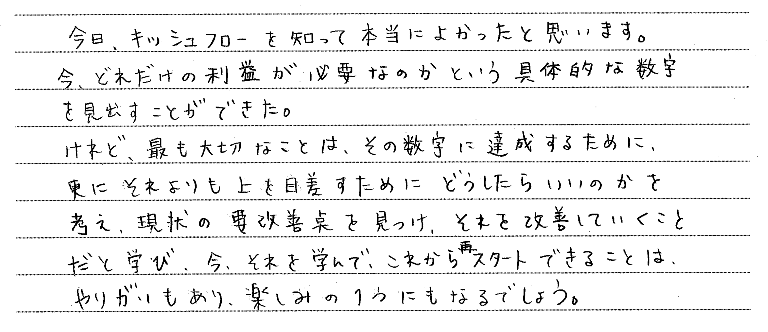 今日、キッシュフローを知って本当によかったと思います。
今、どれだけの利益が必要なのかという具体的な数字
を見出すことができた。
けれど、最も大切なことは、その数字に達成するために、
更にそれよりも上を目差すためにどうしたらいいのかを
考え、現状の要改善点を見つけ、それを改善していくこと
だと学び、今、それを学んで、これから再スタートできることは、
やりがいもあり、楽しみの1つにもなるでしょう。